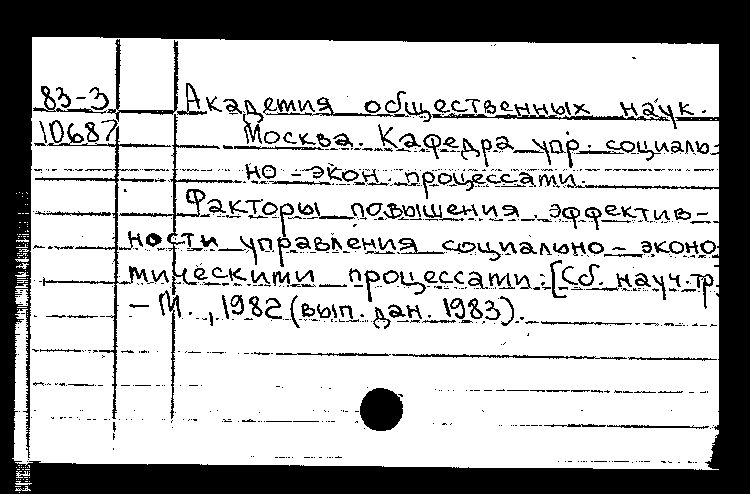 83-3 Академия общественных наук.
10687 Москва. Кафедра упр. социаль-
но-экон. процессами.
Факторы повышения эффектив-
ности управления социально-эконо
мическими процессами: [Сб. науч. тр.
- М., 1982 (вып. дан. 1983).